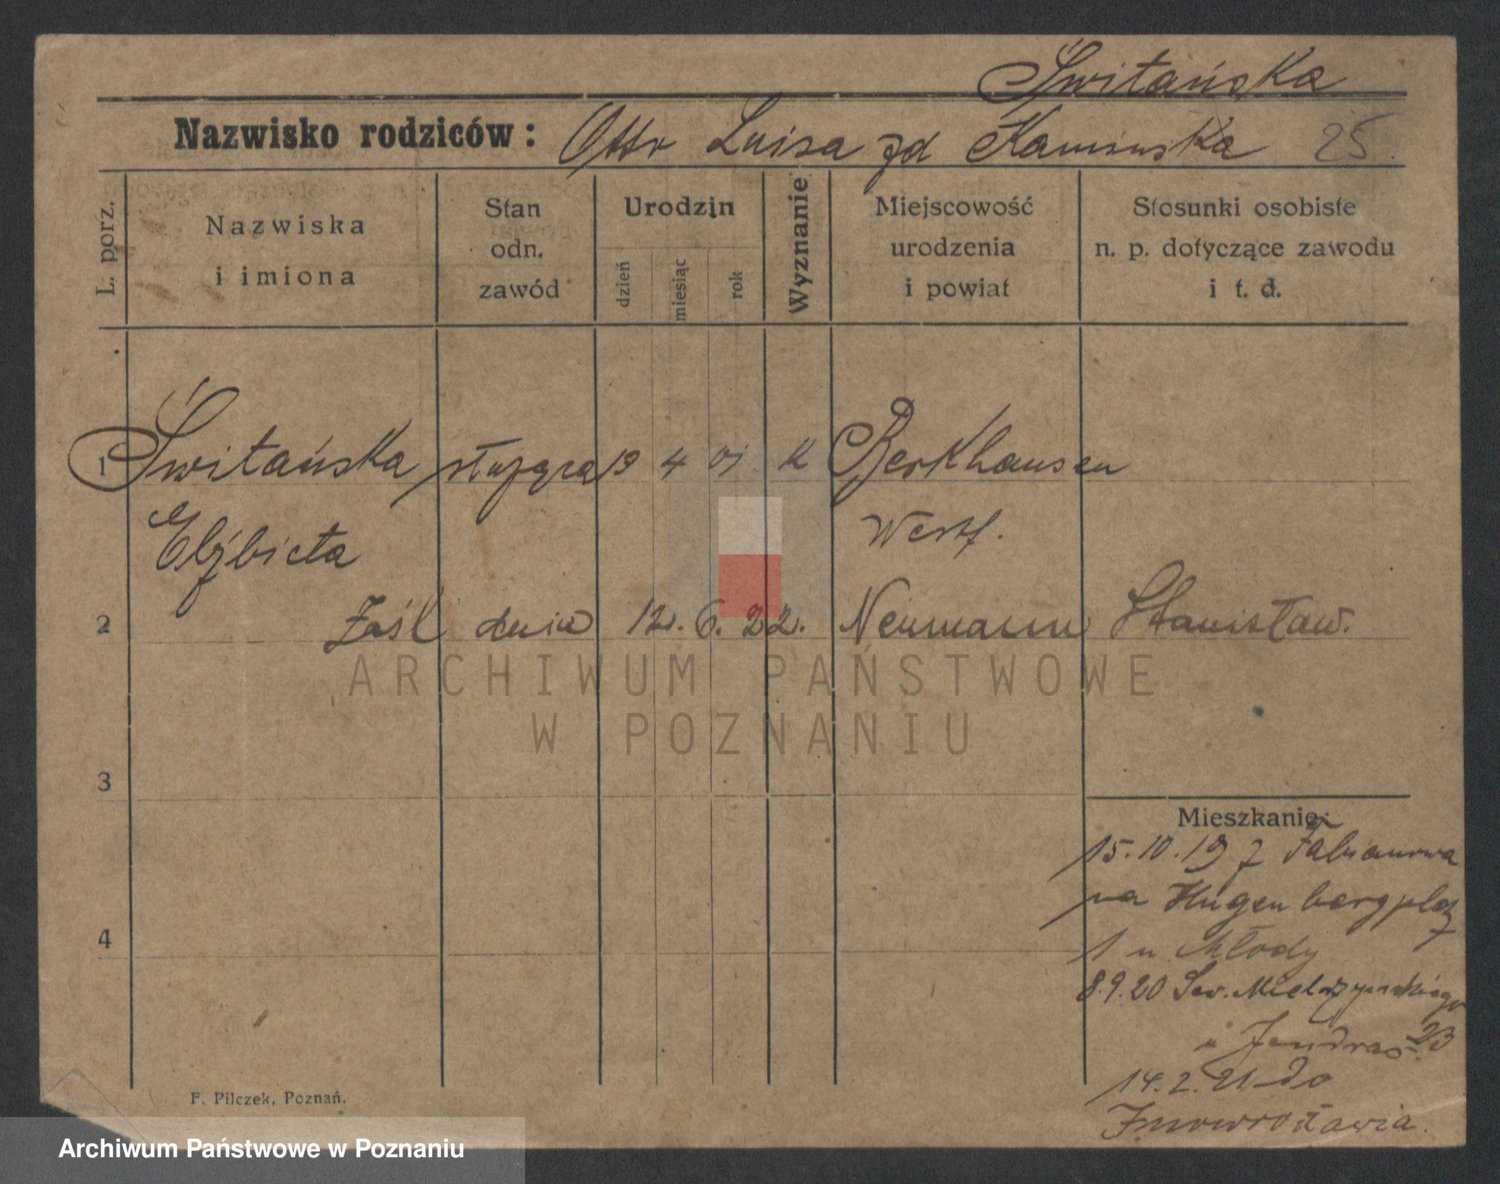 Świtańska
Nazwisko rodziców: Otto Luisa zd Kamińska 25.
L. porz.
Nazwiska
i imiona
Stan
odn.
zawód
Urodzin
dzień
miesiąc
rok
Wyznanie
Miejscowość
urodzenia
i powiat
Stosunki osobiste
n. p. dotyczące zawodu
i t. d.
1 Świtańska służąca 19 4 01 K Berkhausen
Elżbieta Westf.
2 Zaśl dnia 12. 6. 22. Neumann Stanisław.
ARCHIWUM PAŃSTWOWE
W POZNANIU
3
Mieszkanie:
15.10.19 z Fabianowa
na Hugenbergplaz
4
1 u Młody
8.9.20 Sew. Mielżyńskiego
23
u Jendras
14.2.21 do
Inowrocławia.
F. Pilczek, Poznań.
Archiwum Państwowe w Poznaniu